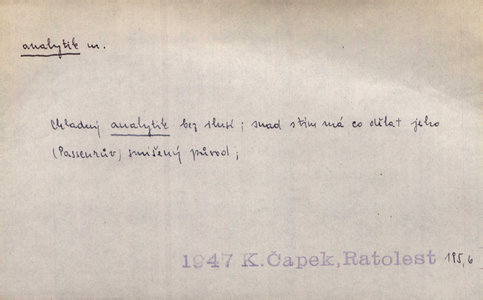 analytik m.
Chladný analytik bez ilusí; snad s tím má co dělat jeho
(Passeurův) smíšený původ;
1947 K.Čapek,Ratolest 195,6